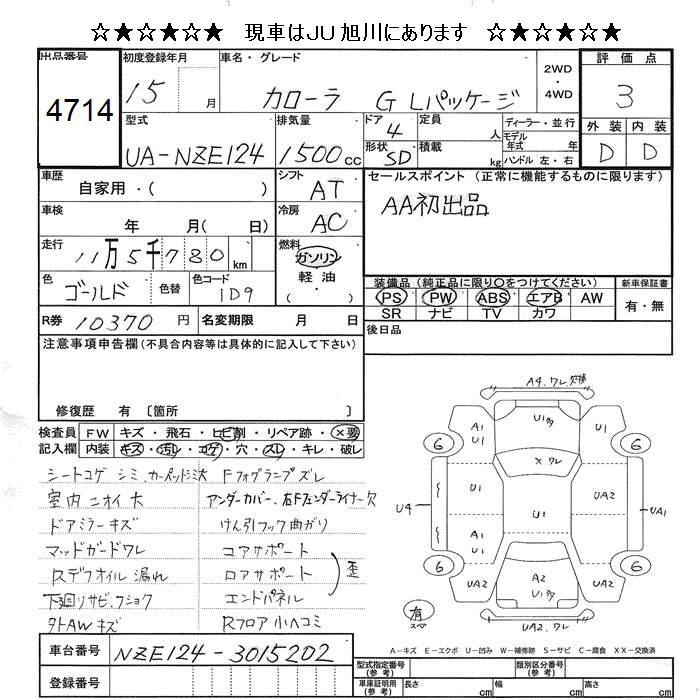 ☆★☆★☆★ 現車はJU旭川にあります ☆★☆★☆★
出品番号 初度登録年月 車名・グレード 2WD ・ 4WD 評価点
4714 15 月 カローラ G Lパッケージ 3
型式 排気量 ドア 定員 ディーラー・並行 外装 内装
UA-NZE124 1500cc 4 人 モデル年式 年 D D
形状 SD 積載 kg ハンドル 左・右
車歴 シフト セールスポイント (正常に機能するものに限ります)
自家用・( ) AT AA初出品
車検 冷房
年 月( 日) AC
走行 燃料
11万5千780km ガソリン
色 色替 色コード 軽油
ゴールド 1D9 ・( )
装備品(純正品に限り○をつけてください) 新車保証書
PS PW ABS エアB AW 有・無
SR ナビ TV カワ
R券 10370円 名変期限 月 日 後日品
注意事項申告欄(不具合内容等は具体的に記入して下さい)
修復歴 有 〔箇所 〕
検査員 FW キズ・飛石・ヒビ割・リペア跡・×要
記入欄 内装 キズ・汚レ・コゲ・穴・スレ・キレ・破レ
シートコゲ シミ、カーペットシミ大 Fフォグランプズレ
室内ニオイ大 アンダーカバー、右Fフェンダーライナー欠
ドアミラーキズ けん引フック曲がり
マッドガードワレ コアサポート
Rデフオイル漏れ ロアサポート 歪
下廻リサビ、フショク エンドパネル
外AWキズ Rフロア小ヘコミ
A4、ワレ、交換
A1 U1 U1多 U1
6 6
×ワレ
U4 U1 U1 UA2 UA1
A1 U1
6 6
UA2 A2 U1多 UA2
有 スペ UA2、ワレ
A-キズ E-エクボ U-凹み W-補修跡 S-サビ C-腐食 XX-交換済
車台番号 NZE124-3015202
登録番号
型式指定番号(参考) 類別区分番号(参考)
車庫証明用(参考) 長さ cm 幅 cm 高さ cm